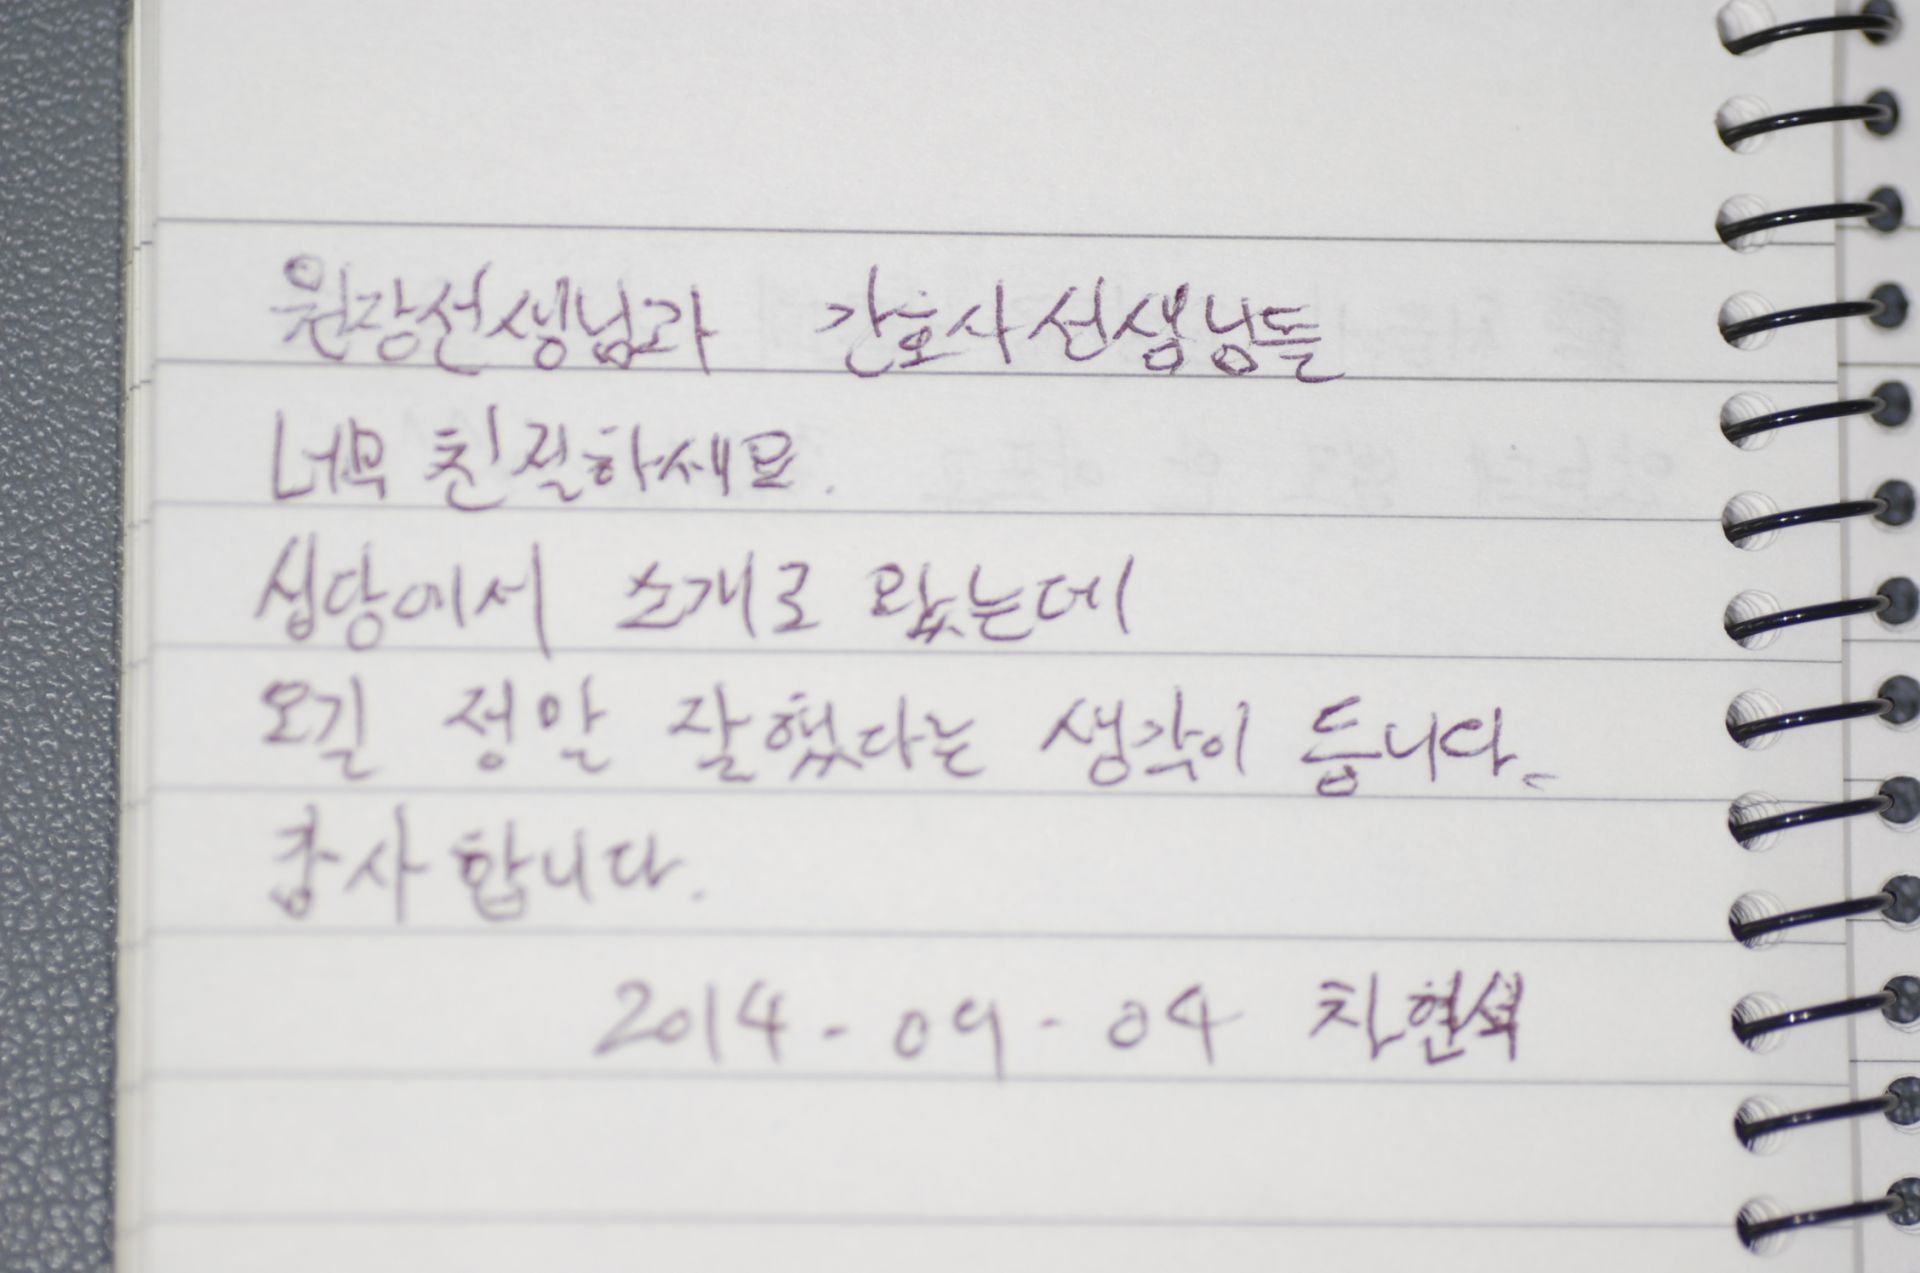 원장선생님과 간호사선생님들
너무 친절하세요.
십당에서 소개로 왔는데
오길 정말 잘했다는 생각이 듭니다.
감사합니다.
2014-09-04 차현석